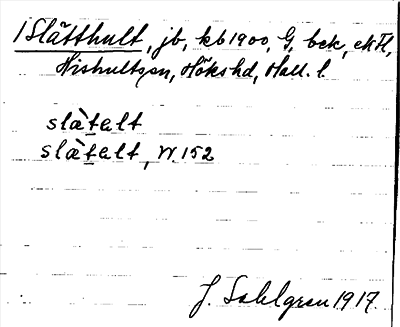 /Slätthult, jb, kb 1900, G, bek, ekFl,
Hishultssn, Hökshd, Hall. l.
slàtɐlt
slàtɐlt, W. 152
J. Sahlgren 1917